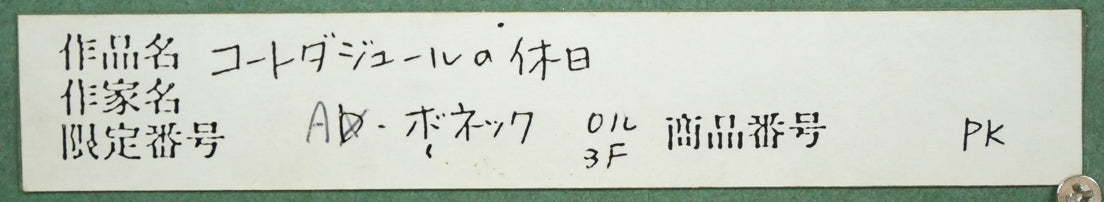 作品名 コートダジュールの休日
作家名
限定番号 A・ボネック OIL 3F 商品番号 PK